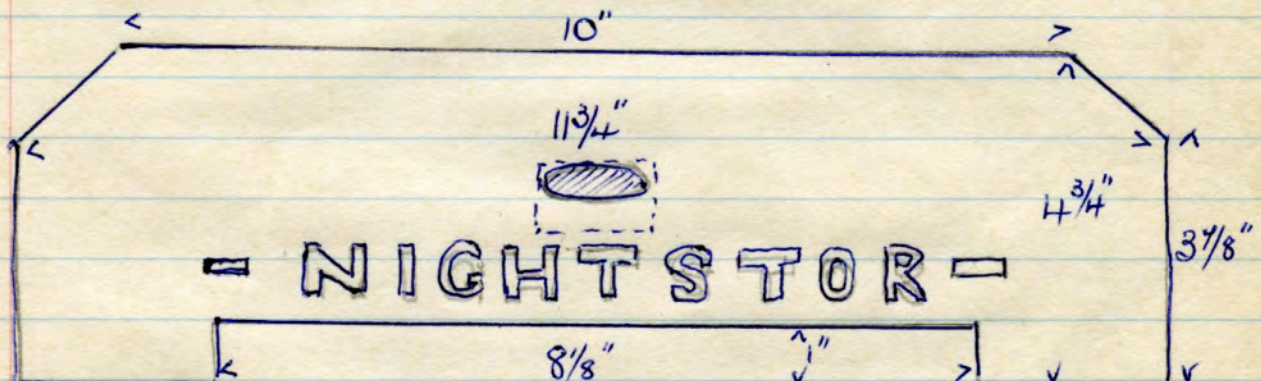 10"
11 3/4"
4 3/4"
3 7/8"
- NIGHTSTOR -
8 1/8"
1"